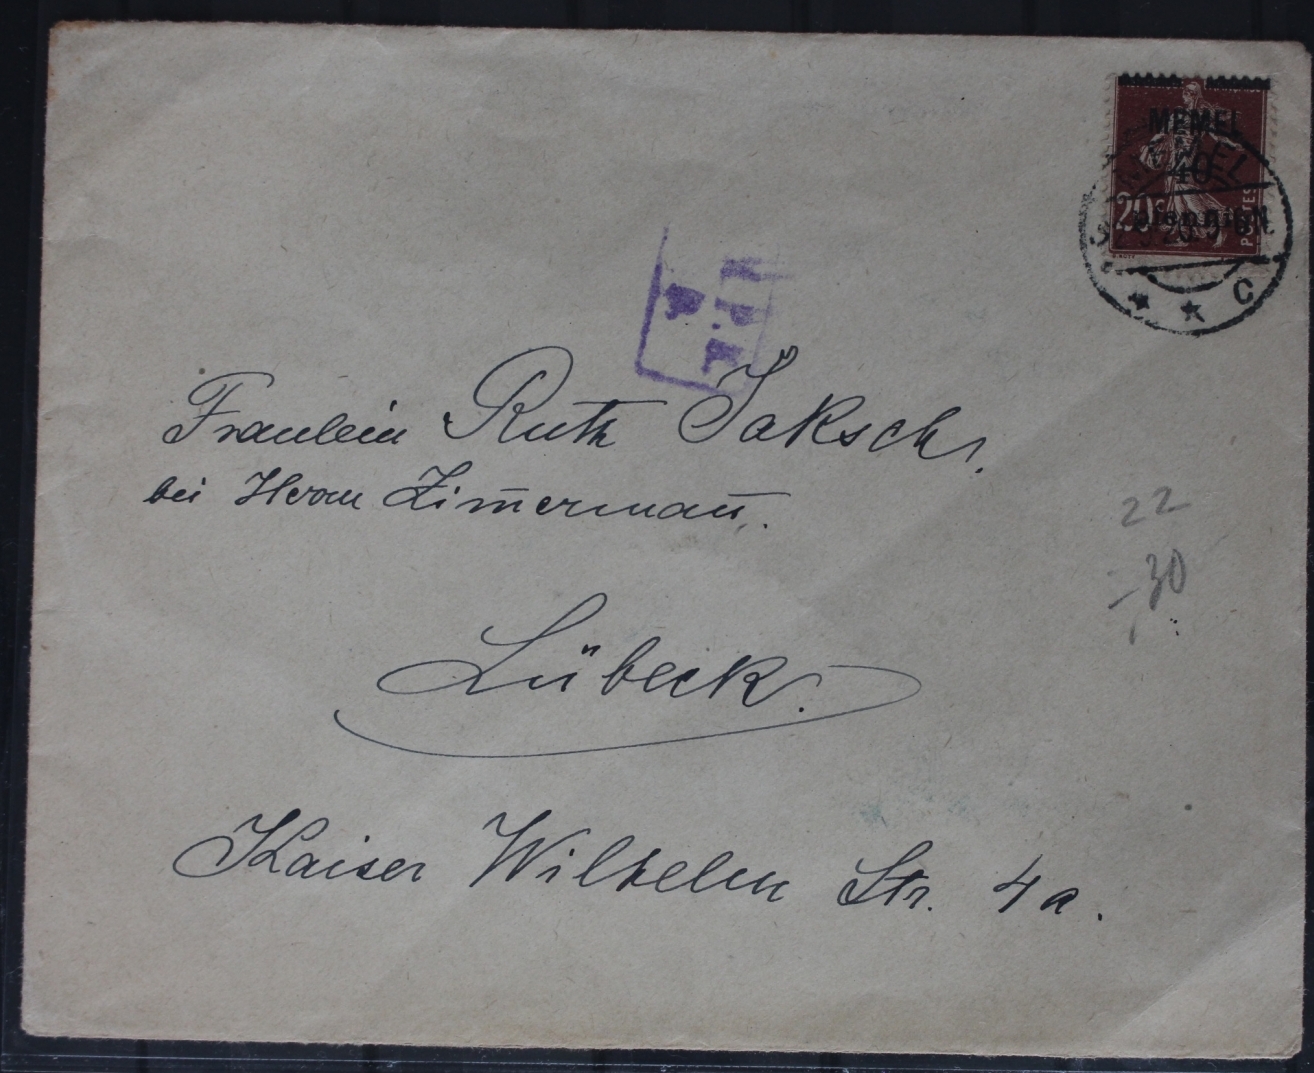 MEMEL
40
pfennig
20c
POSTES
MEMEL
C
Fräulein Ruth Jaksch.
bei Herrn Zim̅erman̅.
Lübeck.
Kaiser Wilhelm Str. 4a.
22
30